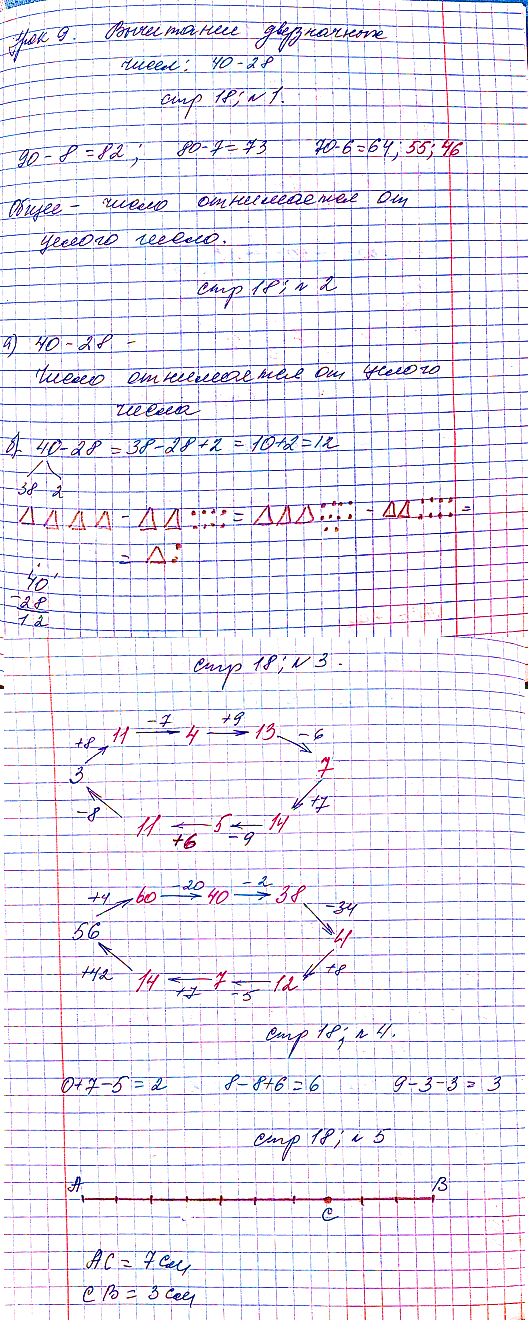 Урок 9. Вычитание двузначных
чисел: 40-28
стр 18; №1.
90-8=82; 80-7=73 70-6=64; 55; 46
Общее - число отнимается от
целого число.
стр 18; №2
а) 40-28 -
Число отнимается от целого
числа
б) 40-28=38-28+2=10+2=12
38 2
- = - =
=
40
-28
12
стр 18; №3.
+8 11 -7 4 +9 13 -6
3 7
-8 11 +6 5 -9 14 +7
+4 60 -20 40 -2 38 -34
56 4
+42 14 +7 7 -5 12 +8
стр 18; №4.
0+7-5=2 8-8+6=6 9-3-3=3
стр 18; №5
А В
С
АС=7см
СВ=3см